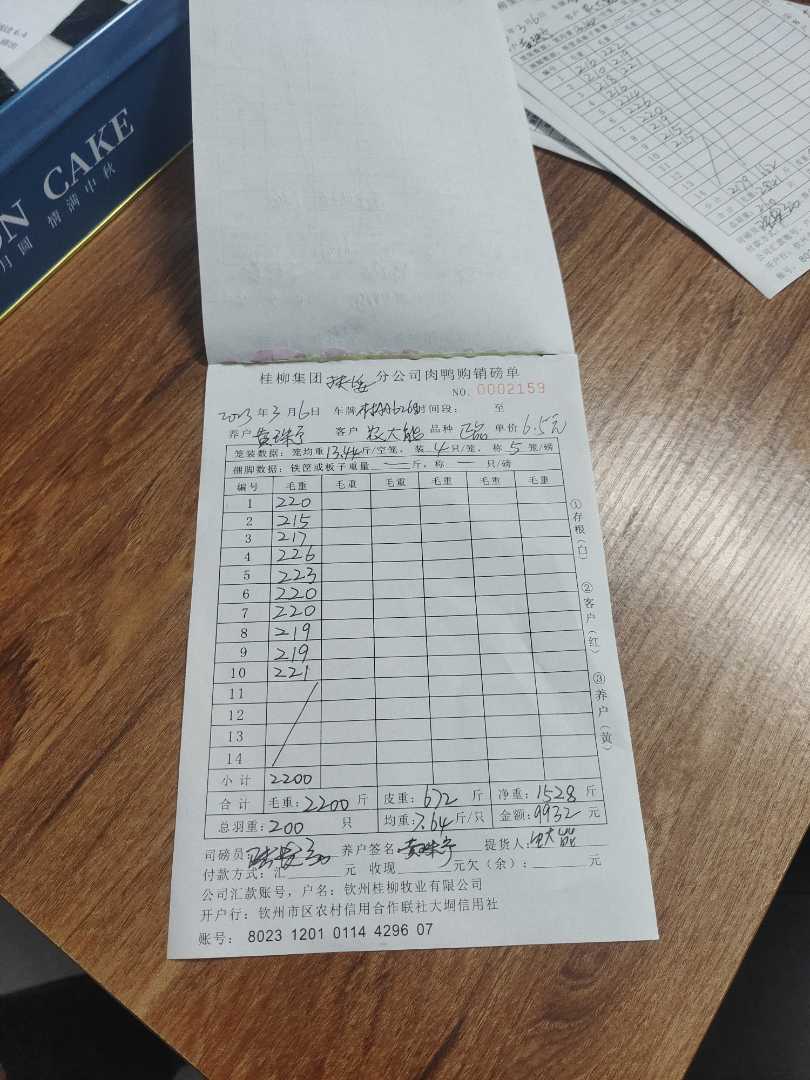 ON CAKE
月圆 情满中秋
桂柳集团扶绥分公司肉鸭购销磅单
NO. 0002159
2023年3月6日 车牌 时间段： 至
养户 黄珠宁 客户 品种 正品 单价 6.5元
笼装数据：笼均重13.44斤/空笼，装4只/笼，称5笼/磅
捆脚数据：铁筐或板子重量——斤，称—只/磅
编号 毛重 毛重 毛重 毛重 毛重 毛重
1 220
2 215
3 217
4 226
5 223
6 220
7 220
8 219
9 219
10 221
11
12
13
14
小计 2200
合计 毛重：2200斤 皮重：672斤 净重：1528斤
总羽重：200只 均重：7.64斤/只 金额：9932元
司磅员： 养户签名：黄珠宁 提货人：
付款方式：汇____元 收现____元欠（余）：____元
公司汇款账号，户名：钦州桂柳牧业有限公司
开户行：钦州市区农村信用合作联社大垌信用社
账号： 8023 1201 0114 4296 07
①存根（白）
②客户（红）
③养户（黄）